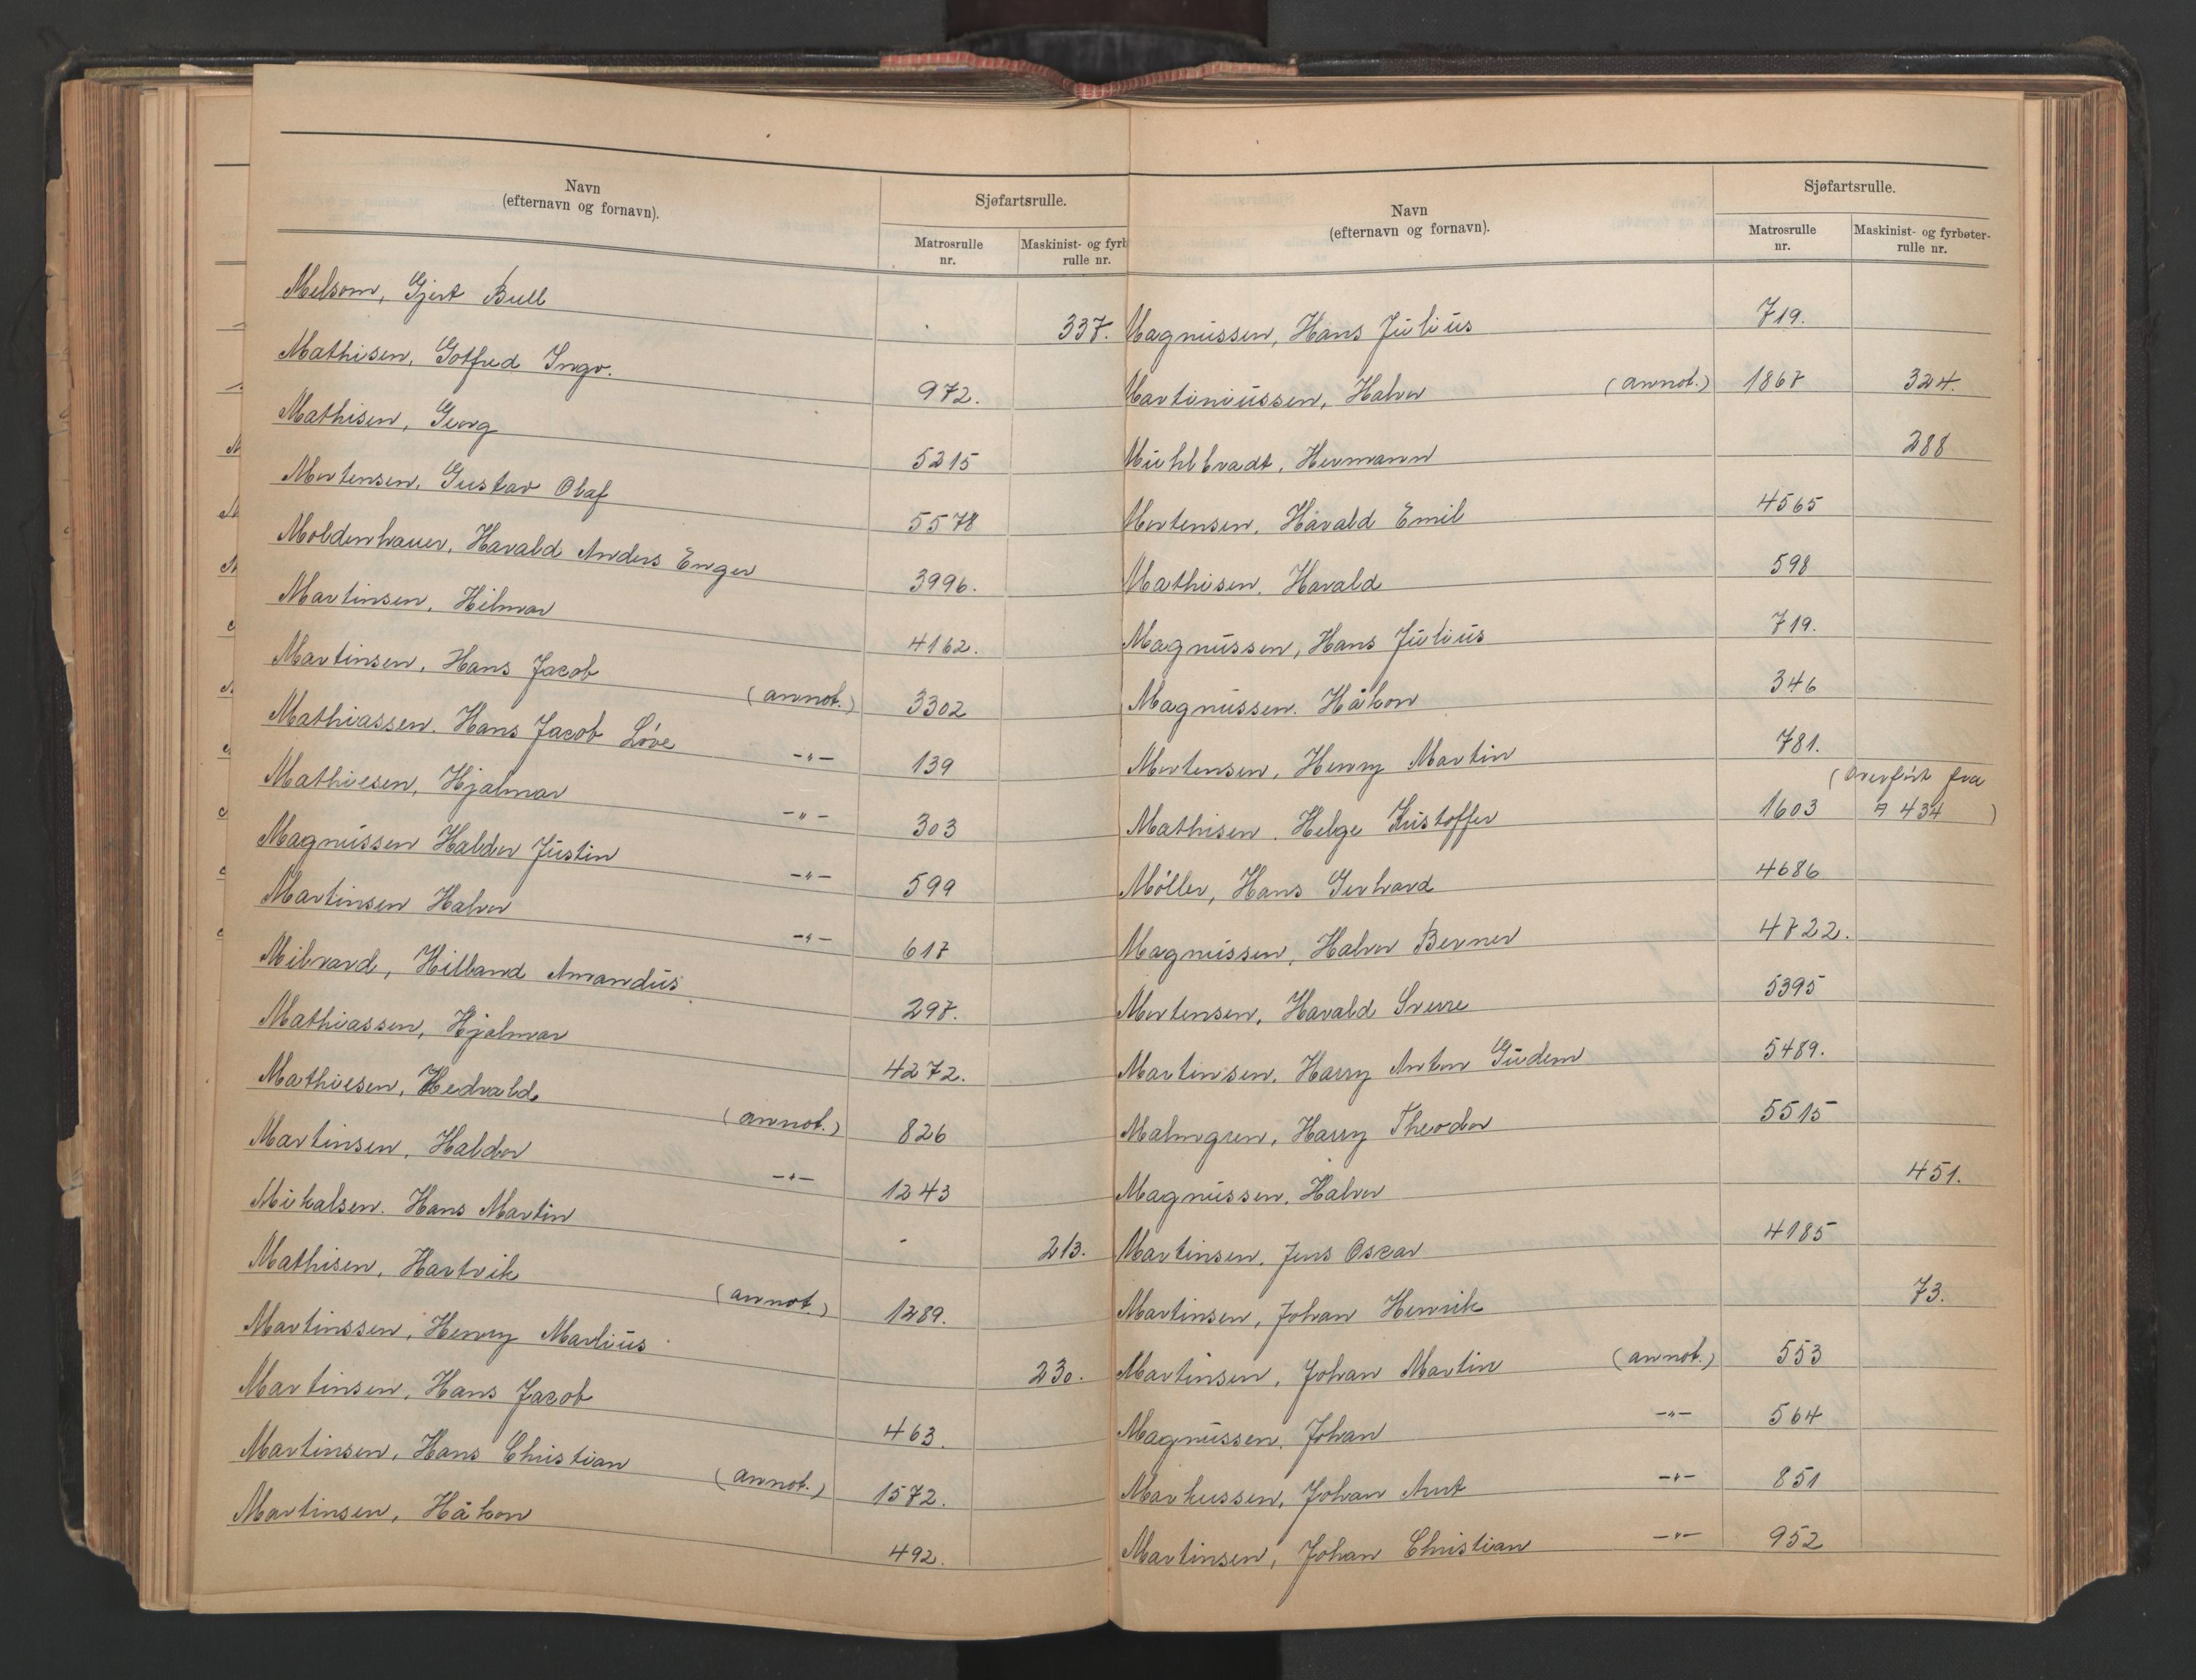 Navn
(efternavn og fornavn).
Sjøfartsrulle.
Matrosrulle
nr.
Maskinist- og fyrb
rulle nr.
Melsom, Gjert Bull 337.
Mathisen, Gotfred Ingv. 972.
Mathisen, Georg 5215
Mortensen, Gustav Olaf 5578
Moldenhauer, Harald Anders Enger 3996.
Martinsen, Hilmar 4162.
Martinsen, Hans Jacob (annot.) 3302
Mathiassen, Hans Jacob Løve -"- 139
Mathiesen, Hjalmar -"- 303
Magnussen Haldor Justin -"- 599
Martinsen Halvor -"- 617
Milvard, Hilland Amandus 297.
Mathiassen, Hjalmar 4272.
Mathiesen, Hedvald (annot.) 826
Martinsen, Haldor -"- 1243
Mikalsen. Hans Martin 213.
Mathisen, Hartvik (annot.) 1289.
Martinssen, Henry Marlius 230.
Martinsen, Hans Jacob 463.
Martinsen, Hans Christian (annot.) 1572.
Martinsen, Håkon 492.
Navn
(efternavn og fornavn).
Sjøfartsrulle.
Matrosrulle
nr.
Maskinist- og fyrbøter-
rulle nr.
Magnussen, Hans Julius 719.
Martiniussen, Halvor (annot.) 1867 324.
Muhlbradt, Hermann 288
Mortensen, Harald Emil 4565
Mathisen, Harald 598
Magnussen, Hans Julius 719.
Magnussen. Håkon 346
Mortensen, Henry Martin 781.
(overført fra
Mathisen. Helge Kristoffer 1603 A 434)
Møller, Hans Gerhard 4686
Magnussen, Halvor Berner 4722.
Mortensen, Harald Sverre 5395
Martinsen, Harry Anton Gudem 5489.
Malmgren, Harry Theodor 5515
Magnussen, Halvor 451.
Martinsen, Jens Oscar 4185
Martinsen, Johan Henrik 73.
Martinsen, Johan Martin (annot.) 553
Magnussen, Johan -"- 564
Markussen, Johan Arnt -"- 851
Martinsen, Johan Christian -"- 952